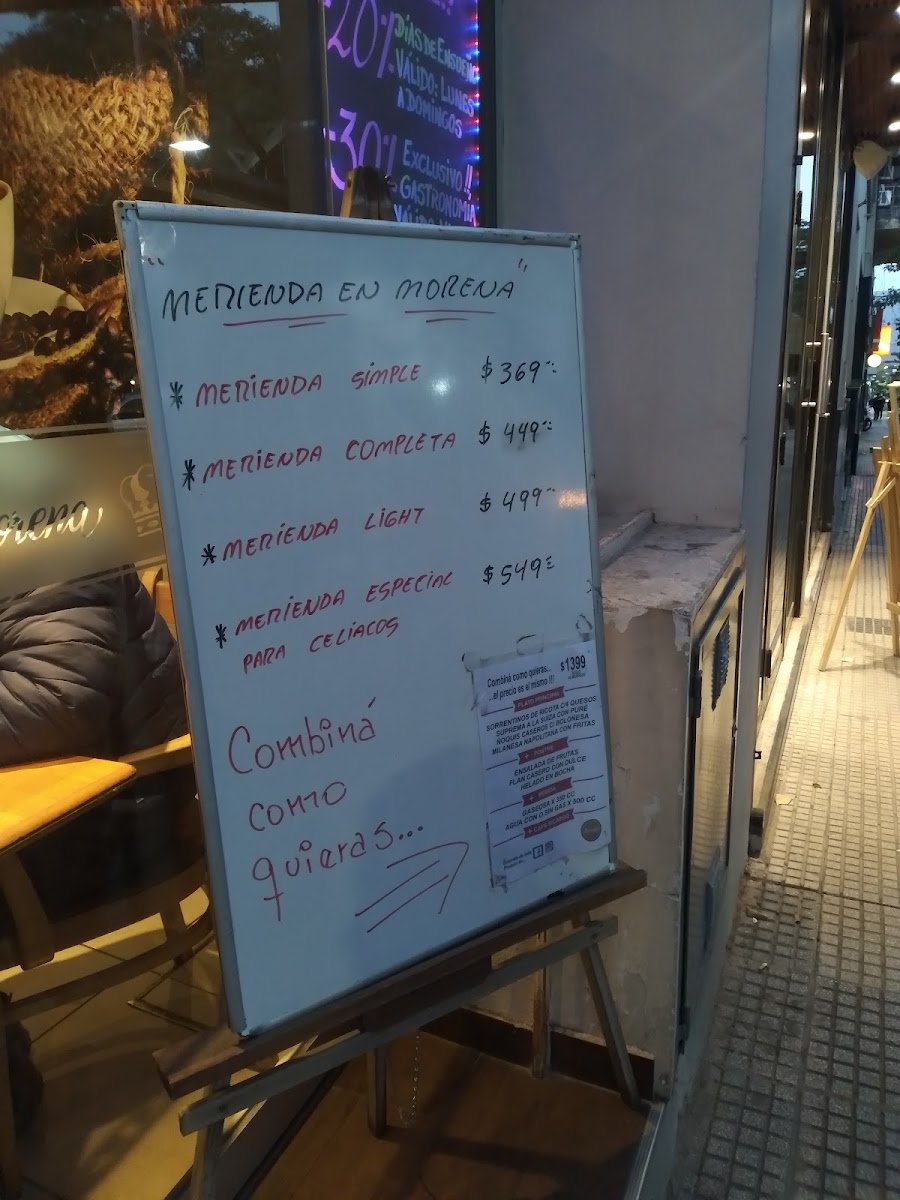 -20%
DÍAS DE ENSUEÑ
VÁLIDO: LUNES
A DOMINGOS
-30%
EXCLUSIVO!!
GASTRONOMÍA
"MERIENDA EN MORENA"
* MERIENDA SIMPLE $369
* MERIENDA COMPLETA $449
* MERIENDA LIGHT $499
* MERIENDA ESPECIAL $549
PARA CELÍACOS
Combiná
como
quieras...
Combiná como quieras... $1399
...el precio es el mismo !!!
PLATO PRINCIPAL
SORRENTINOS DE RICOTA C/4 QUESOS
SUPREMA A LA SUIZA CON PURE
ÑOQUIS CASEROS C/ BOLONESA
MILANESA NAPOLITANA CON FRITAS
+ POSTRE
ENSALADA DE FRUTAS
FLAN CASERO CON DULCE
HELADO EN BOCHA
+ BEBIDA
GASEOSA X 350 CC
AGUA CON O SIN GAS X 500 CC
orena